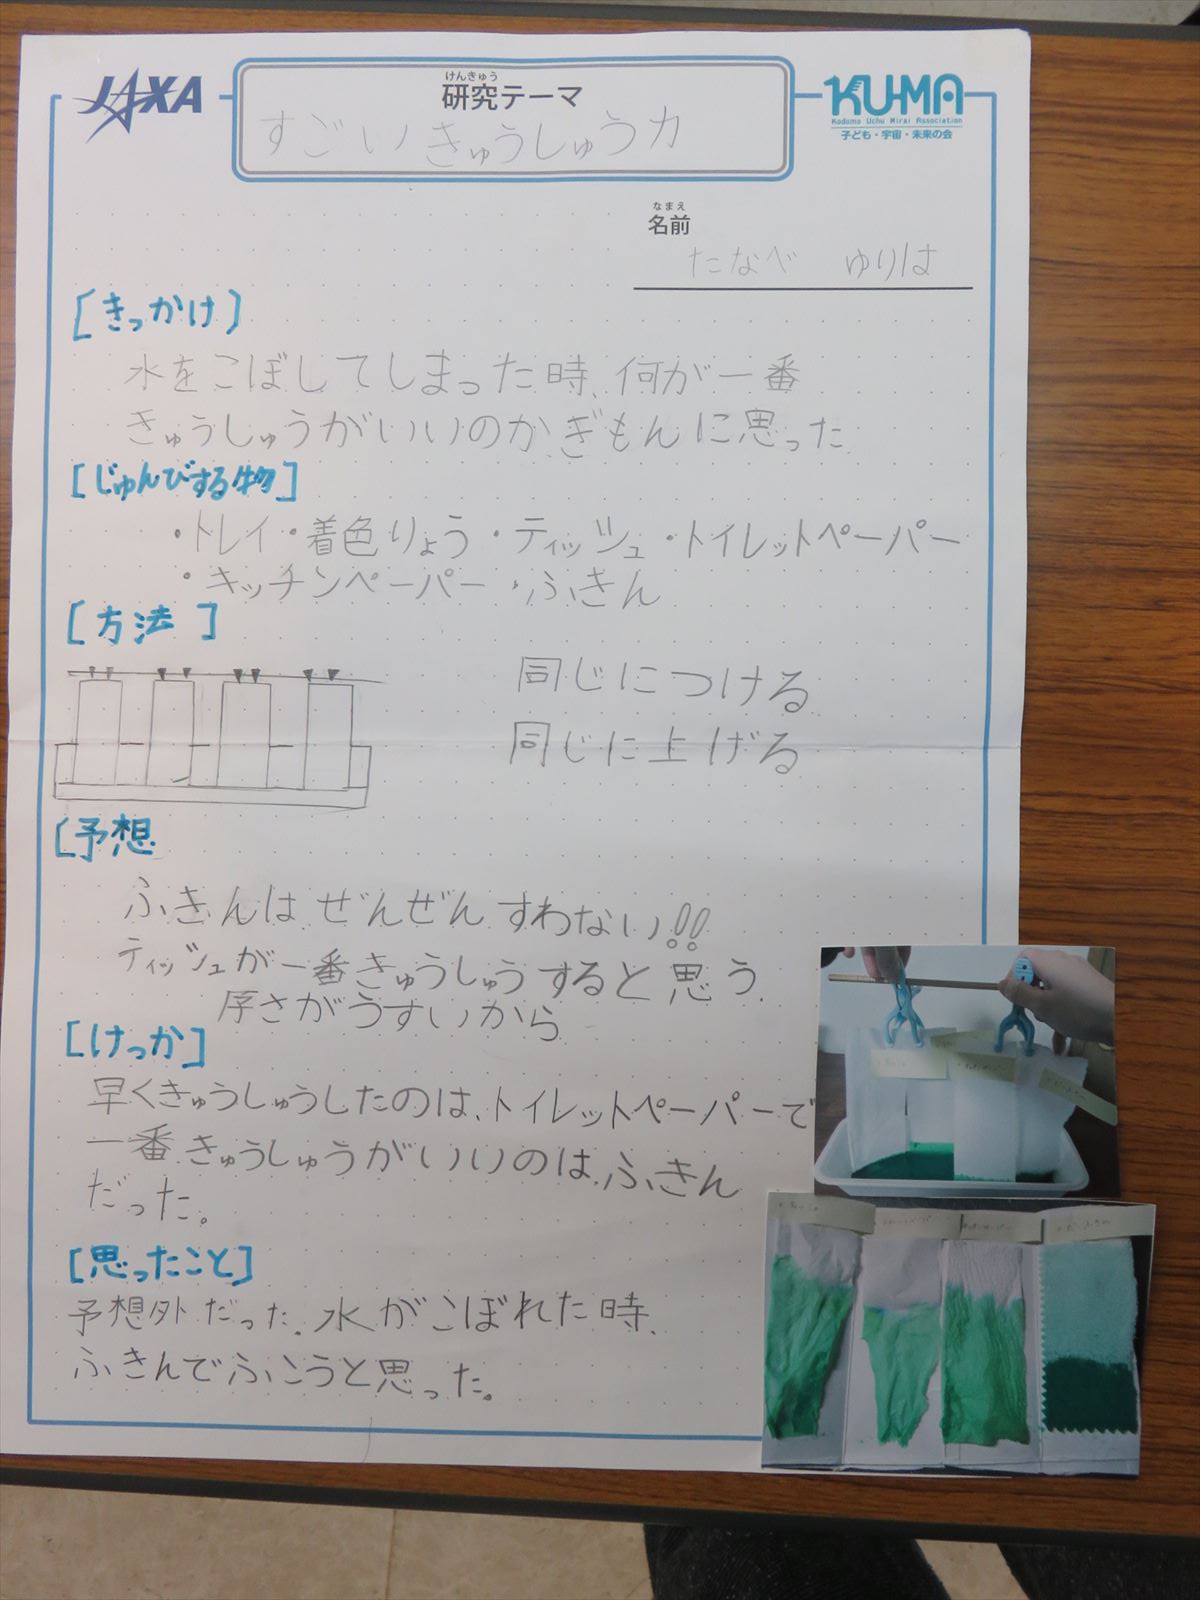 JAXA
けんきゅう
研究テーマ
すごいきゅうしゅう力
KU-MA
Kodomo Uchu Mirai Association
子ども・宇宙・未来の会
なまえ
名前
たなべ ゆりは
[きっかけ]
水をこぼしてしまった時、何が一番
きゅうしゅうがいいのかぎもんに思った
[じゅんびする物]
・トレイ・着色りょう・ティッシュ・トイレットペーパー
・キッチンペーパー・ふきん
[方法]
同じにつける
同じに上げる
[予想
ふきんはぜんぜんすわない!!
ティッシュが一番きゅうしゅうすると思う.
厚さがうすいから
[けっか]
早くきゅうしゅうしたのは、トイレットペーパーで
一番きゅうしゅうがいいのは、ふきん
だった。
[思ったこと]
予想外だった。水がこぼれた時、
ふきんでふこうと思った。